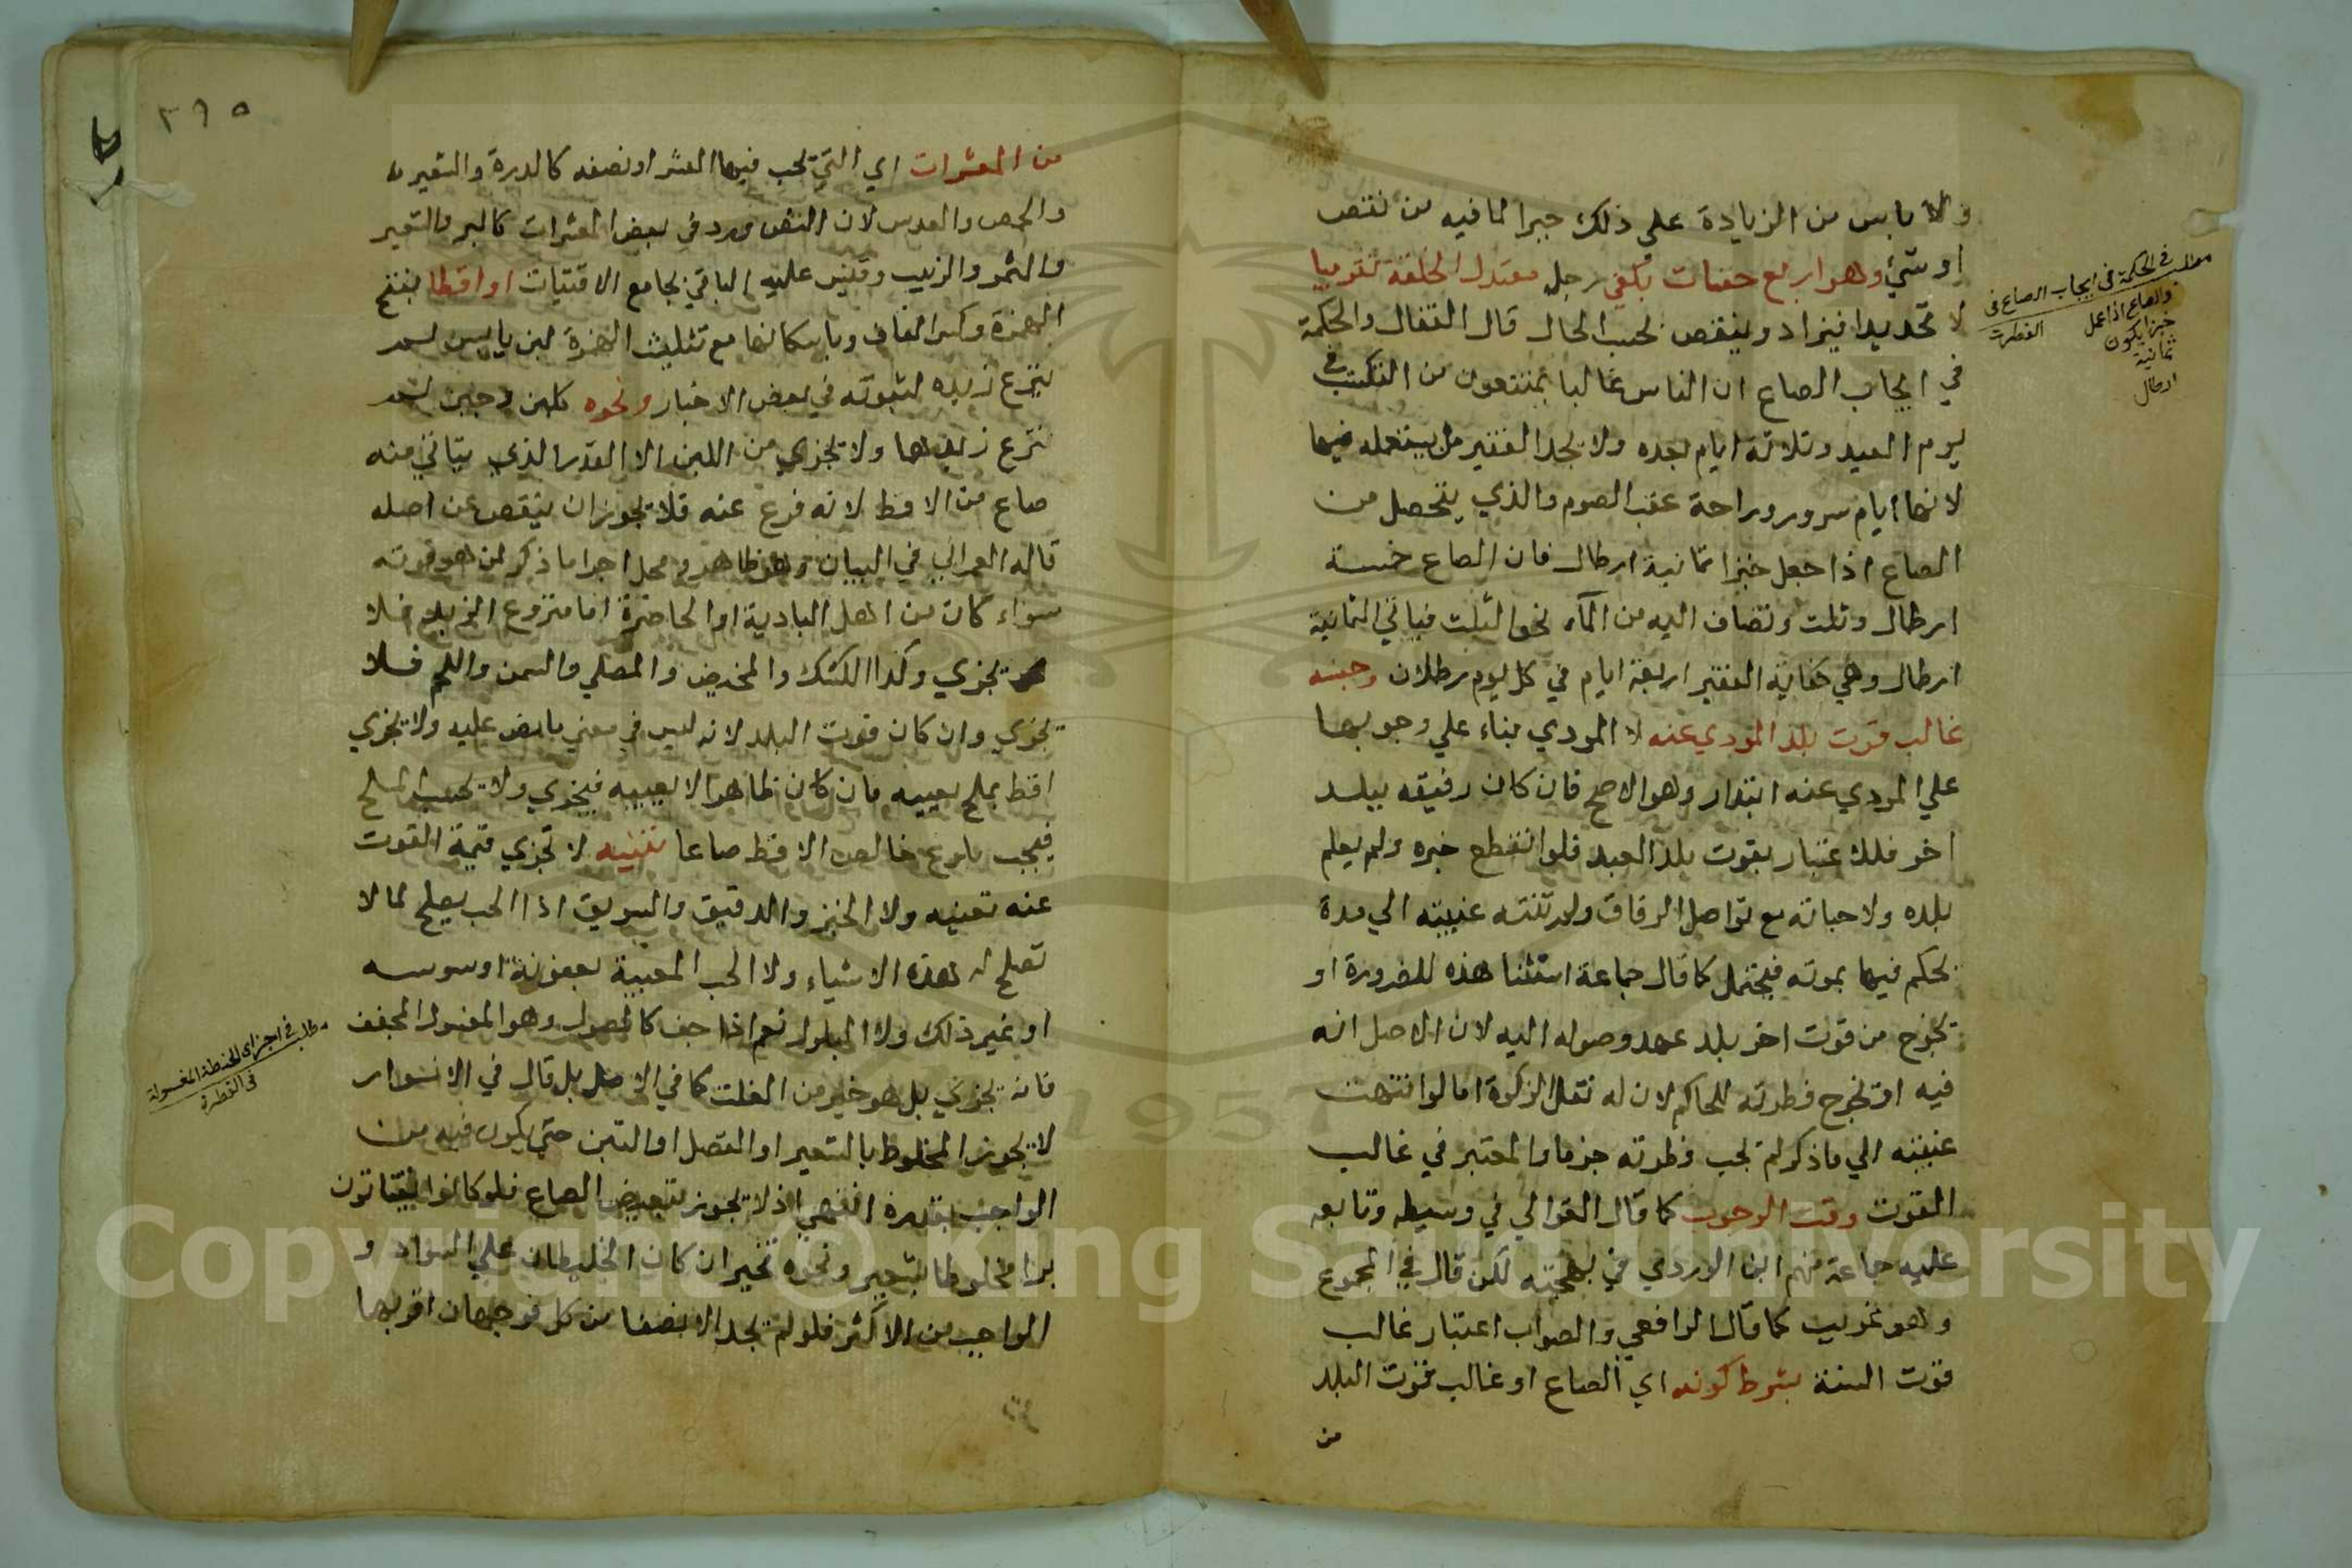 ولا باس من الزيادة على ذلك جبرا لما فيه من نقص
او شيئ وهو اربع حفنات بكفي رجل معتدل الخلقة تقريبا
لا تحديدا فيزاد وينقص بحسب الحال قال القفال والحكمة
في ايجاب الصاع ان الناس غالبا يمتنعون من التكسب في
يوم العيد وثلاثة ايام بعده ولا يجد الفقير من يستعمله فيها
لانها ايام سرور وراحة عقب الصوم والذي يتحصل من
الصاع اذا جعل خبزا ثمانية ارطال فان الصاع خمسة
ارطال وثلث وتضاف اليه من الماء نحو الثلث فياتي الثمانية
ارطال وهي كفاية الفقير اربعة ايام في كل يوم رطلان وجنسه
غالب قوت بلد المودي عنه لا المودي بناء على وجوبها
علي المودي عنه ابتداء وهو الاصح فان كان رقيقه ببلد
اخر فالاعتبار بقوت بلد العبد فلو انقطع خبره ولم يعلم
بلده ولا حياته مع تواصل الرفاق ولم تنته غيبته الي مدة
يحكم فيها بموته فيحتمل كما قال جماعة استثنا هذه للضرورة او
يخرج من قوت اخر بلد عهد وصوله اليه لان الاصل انه
فيه او تخرج فطرته للحاكم لان له نقل الزكوة اما لو انتهت
غيبته الي ما ذكر لم تجب فطرته جزما والمعتبر في غالب
القوت وقت الوجوب كما قال الغزالي في وسيطه وتابعه
عليه جماعة منهم ابن الوردي في بهجته لكن قال في المجموع
وهو غريب كما قال الرافعي والصواب اعتبار غالب
قوت السنة بشرط كونه اي الصاع او غالب قوت البلد
من
مطلب في الحكمة في ايجاب الصاع في
الفطرة
والصاع اذا عمل
خبزا يكون
ثمانية
ارطال
٣٩٥
من المعشرات اي التي يجب فيها العشر او نصفه كالدرة والشعير
والحمص والعدس لان النص ورد في بعض المعشرات كالبر والشعير
والثمر والزبيب وقيس عليه الباقي بجامع الاقتيات او اقطا بفتح
الهمزة وكسر القاف وباسكانها مع تثليث الهمزة لبن يابس لم
ينزع زبده لثبوته في بعض الاخبار ونحوه كلبن وجبن لم
ينزع زبدهما ولا يجزي من اللبن الا القدر الذي يتاتي منه
صاع من الاقط لانه فرع عنه فلا يجوز ان ينقص عن اصله
قاله العمراني في البيان وهو ظاهر ومحل اجزا ما ذكر لمن هو قوته
سواء كان من اهل البادية او الحاضرة اما منزوع الزبد فلا
يجزي وكذا الكشك والمخيض والمصل والسمن واللحم فلا
يجزي وان كان قوت البلد لانه ليس في معني ما نص عليه ولا يجزي
اقط بملح يعيبه فان كان ظاهرا لا يعيبه فيجزي ولا يحسب الملح
فيجب بلوغ خالص الاقط صاعا تنبيه لا تجزي قيمة القوت
عنه تعينه ولا الخبز والدقيق والسويق اذا الحب يصلح لما لا
تصلح له هذه الاشياء ولا الحب المعيبة بعفونة او سوسه
او غير ذلك ولا المبلول نعم اذا جف كالمصول وهو المغسول المجفف
فانه يجزي بل هو خير من الغلت كما في الاصل بل قال في الانوار
لا يجوز المخلوط بالشعير او القصل او التبن حتي يكون فيه من
الواجب بقدره انتهي اذ لا يجوز تبعيض الصاع فلو كانوا يقتاتون
برا مخلوطا بشعير ونحوه تخير ان كان الخليطان علي السواء و
الواجب من الاكثر فلو لم يجد الا نصفا من كل فوجهان اقربهما
مطلب في اجزاء الحنطة المغسولة
في الفطرة
Copyright © King Saud University
1957